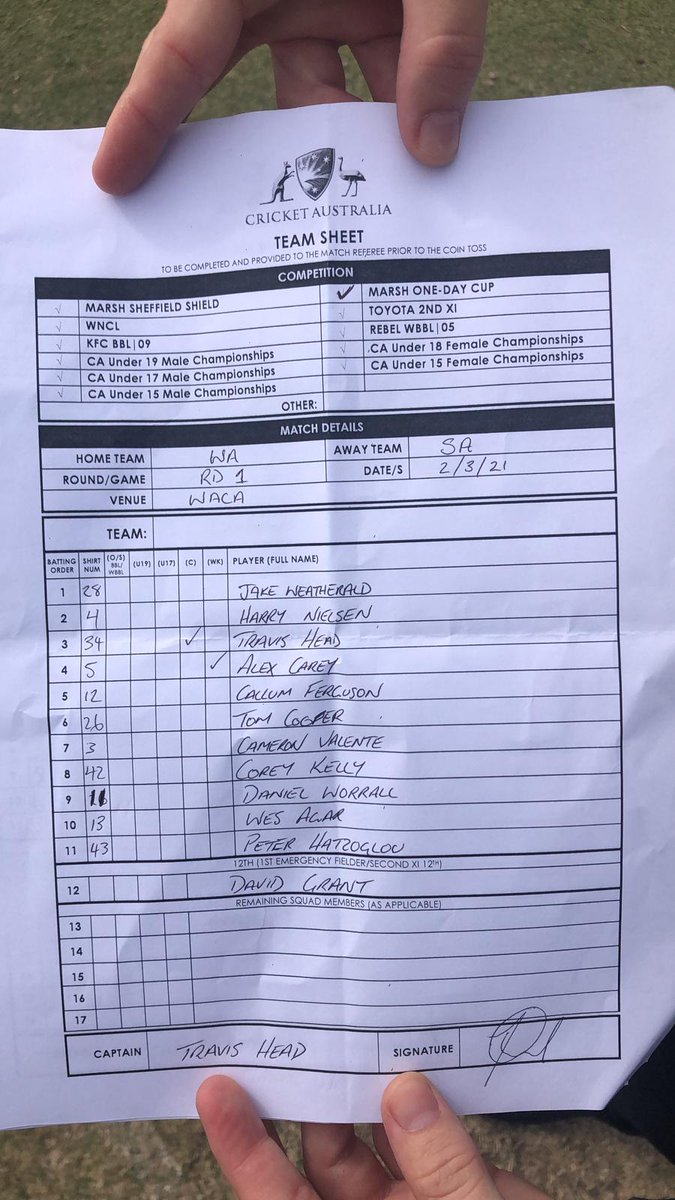 CRICKET AUSTRALIA
TEAM SHEET
TO BE COMPLETED AND PROVIDED TO THE MATCH REFEREE PRIOR TO THE COIN TOSS
COMPETITION
√ MARSH SHEFFIELD SHIELD ✓ MARSH ONE-DAY CUP
√ WNCL √ TOYOTA 2ND XI
√ KFC BBL|09 √ REBEL WBBL|05
√ CA Under 19 Male Championships √ CA Under 18 Female Championships
√ CA Under 17 Male Championships √ CA Under 15 Female Championships
√ CA Under 15 Male Championships
OTHER:
MATCH DETAILS
HOME TEAM WA AWAY TEAM SA
ROUND/GAME RD 1 DATE/S 2/3/21
VENUE WACA
TEAM:
BATTING ORDER SHIRT NUM (O/S) BBL/ WBBL (U19) (U17) (C) (WK) PLAYER (FULL NAME)
1 28 JAKE WEATHERALD
2 4 HARRY NIELSEN
3 34 ✓ TRAVIS HEAD
4 5 ✓ ALEX CAREY
5 12 CALLUM FERGUSON
6 26 TOM COOPER
7 3 CAMERON VALENTE
8 42 COREY KELLY
9 16 DANIEL WORRALL
10 13 WES AGAR
11 43 PETER HATZOGLOU
12TH (1ST EMERGENCY FIELDER/SECOND XI 12TH)
12 DAVID GRANT
REMAINING SQUAD MEMBERS (AS APPLICABLE)
13
14
15
16
17
CAPTAIN TRAVIS HEAD SIGNATURE